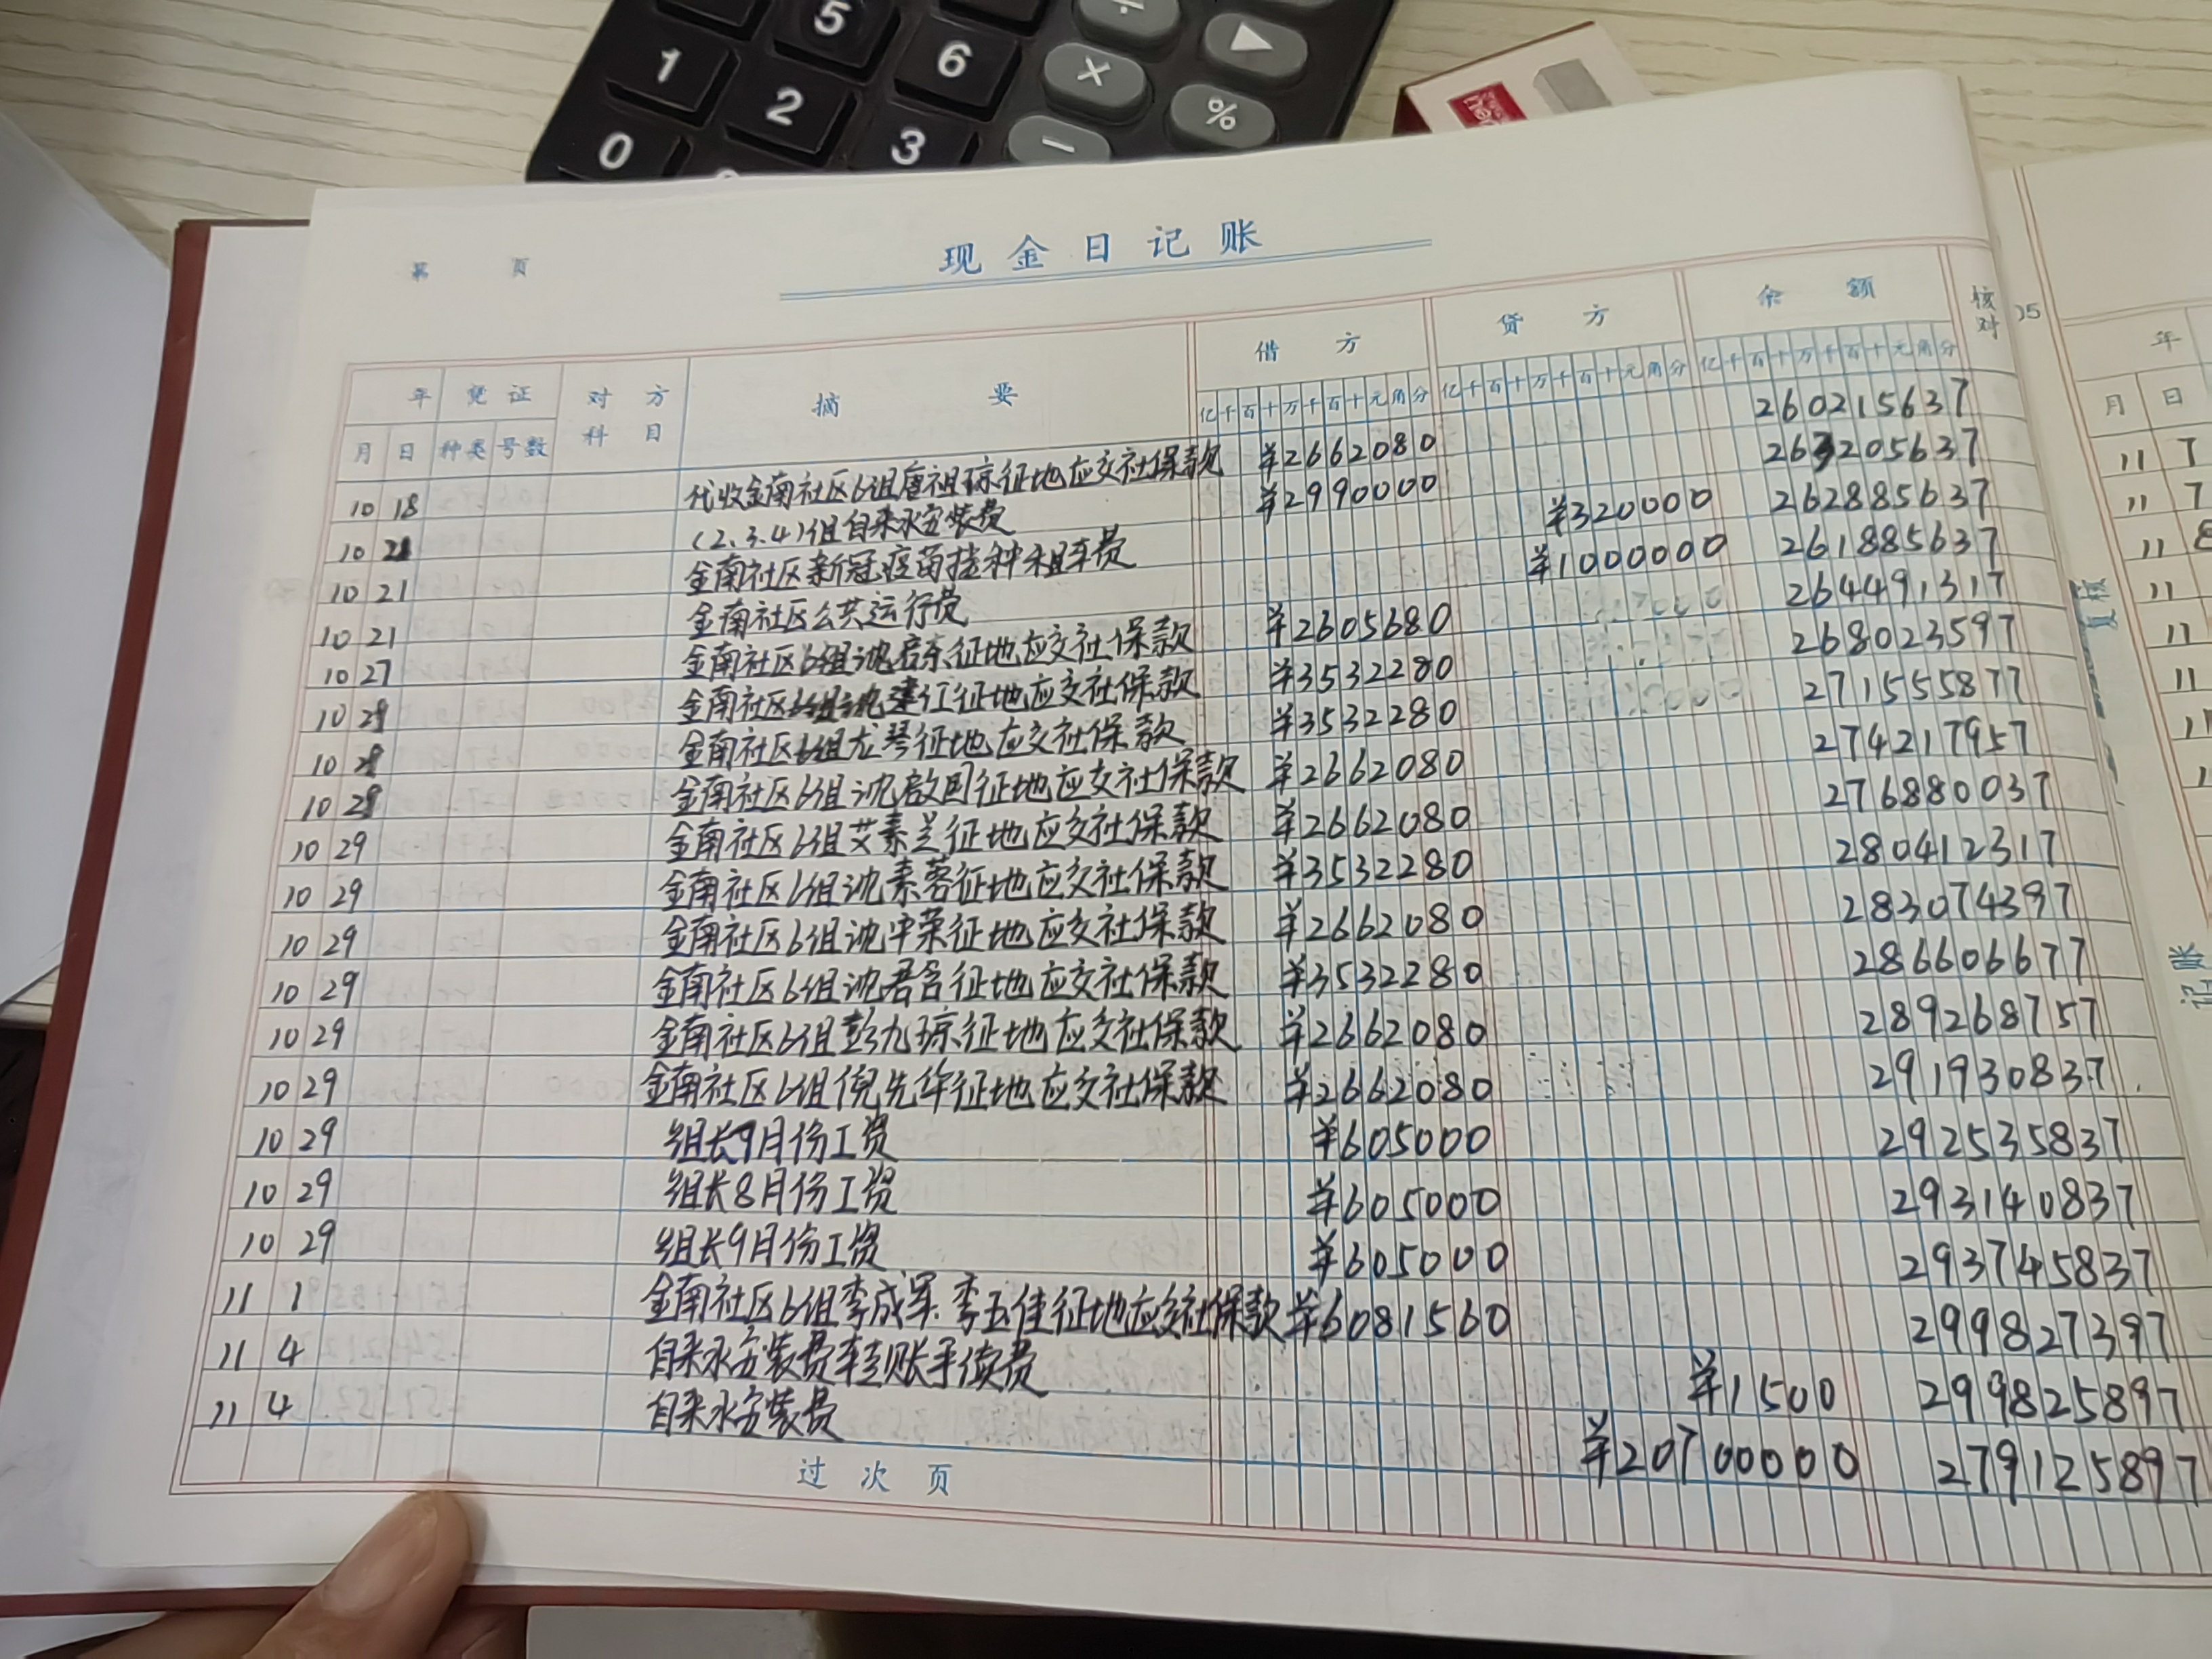 5
1
6
×
▶
2
%
0
3
−
现金日记账
第 页
年 凭证 对方科目 摘要 借方 贷方 余额 核对
月 日 种类 号数 亿千百十万千百十元角分 亿千百十万千百十元角分 亿千百十万千百十元角分
260215637
10 18 代收金南社区6组唐祖琼征地应交社保款 ¥2662080 263205637
10 21 (2、3.4)组自来水安装费 ¥2990000 ¥320000 262885637
10 21 金南社区新冠疫苗接种租车费 ¥1000000 261885637
10 21 金南社区公共运行费 264491317
10 27 金南社区6组沈君东征地应交社保款 ¥2605680 268023597
10 28 金南社区6组沈建江征地应交社保款 ¥3532280 271555877
10 28 金南社区6组龙琴征地应交社保款 ¥3532280 274217957
10 28 金南社区6组沈启国征地应交社保款 ¥2662080 276880037
10 29 金南社区6组艾素兰征地应交社保款 ¥2662080 280412317
10 29 金南社区6组沈素蓉征地应交社保款 ¥3532280 283074397
10 29 金南社区6组沈中荣征地应交社保款 ¥2662080 286606677
10 29 金南社区6组沈君含征地应交社保款 ¥3532280 289268757
10 29 金南社区6组彭九琼征地应交社保款 ¥2662080 291930837
10 29 金南社区6组倪先华征地应交社保款 ¥2662080
10 29 组长9月份工资 ¥605000 292535837
10 29 组长8月份工资 ¥605000 293140837
10 29 组长9月份工资 ¥605000 293745837
11 1 金南社区6组李成军.李玉佳征地应交社保款 ¥6081560 299827397
11 4 自来水安装费转账手续费 ¥1500 299825897
11 4 自来水安装费 ¥20700000 279125897
过次页
年
月 日
11 7
11 7
11 8
11
11
11